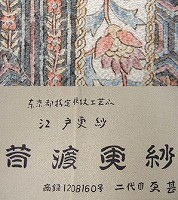 東京都指定伝統工芸品
江戸更紗
昔渡更紗
商録1208160号 二代目更甚